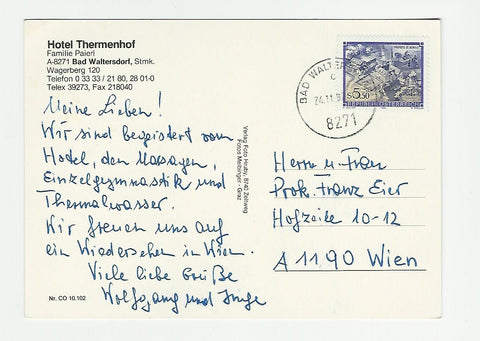 Hotel Thermenhof
Familie Paierl
A-8271 Bad Waltersdorf, Stmk.
Wagerberg 120
Telefon 0 33 33 / 21 80, 28 01-0
Telex 39273, Fax 218040
Meine Lieben!
Wir sind begeistert vom
Hotel, den Massagen,
Einzelgymnastik und
Thermalwasser.
Wir freuen uns auf
ein Wiedersehen in Wien.
Viele liebe Grüße
Wolfgang und Inge
Nr. CO 10.102
Verlag Foto Hruby, 8740 Zeltweg
Fotos Metzinger - Graz
BAD WALTERS
24.11.
8271
S 5.50
REPUBLIK ÖSTERREICH
Herrn u. Frau
Prok. Franz Eier
Hofzeile 10-12
A 1190 Wien